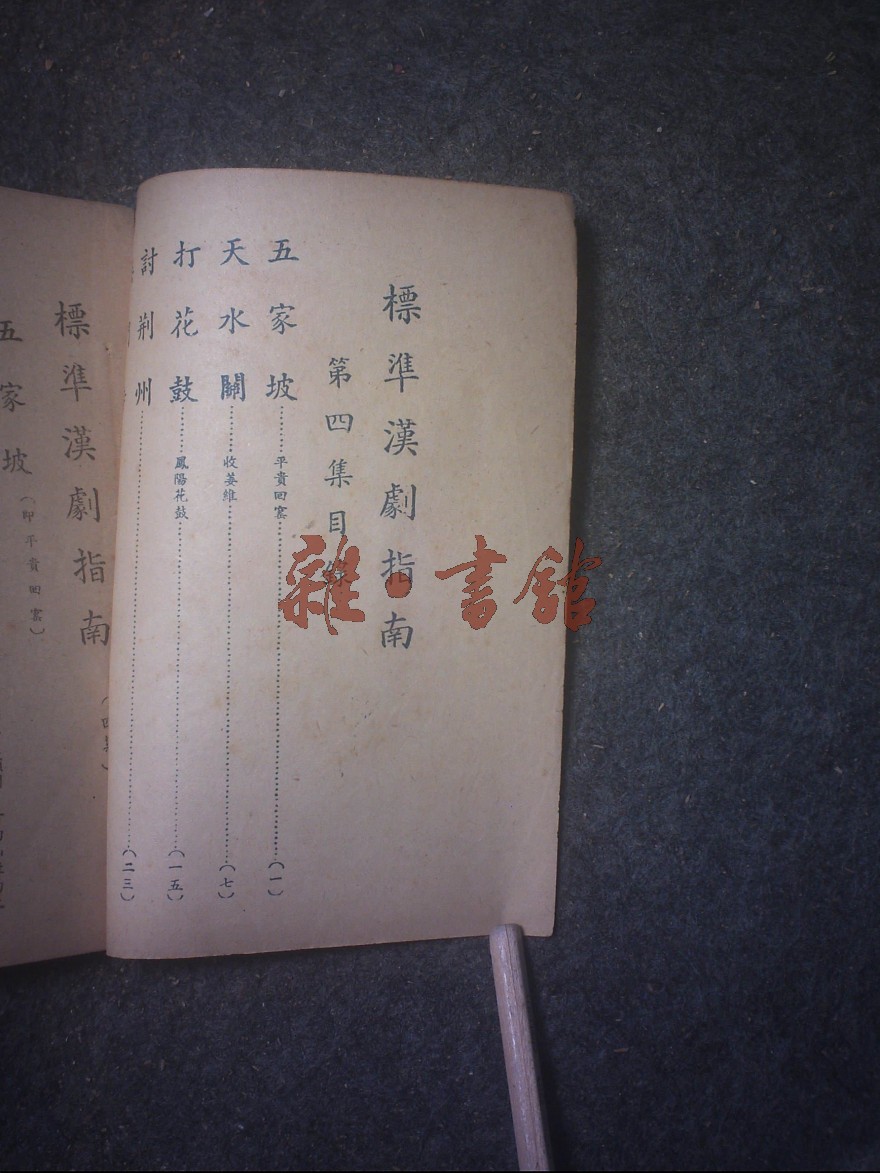 標準漢劇指南
第四集目錄
五家坡………平貴回窰………(一)
天水關………收姜維………(七)
打花鼓………鳳陽花鼓………(一五)
討荊州………(二三)
標準漢劇指南
五家坡(即平貴回窰)
雜·書館